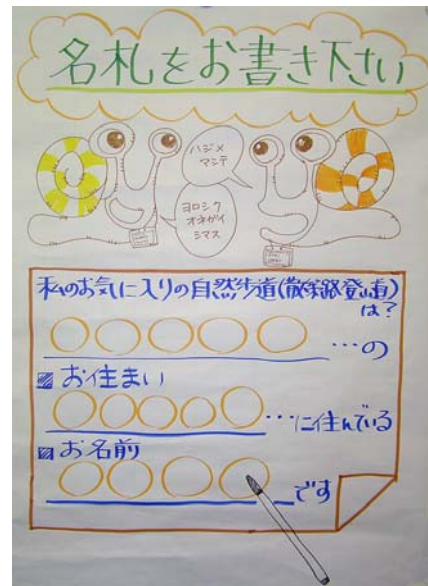 名札をお書き下さい
ハジメ
マシテ
ヨロシク
オネガイ
シマス
私のお気に入りの自然歩道(散策路登山道)
は?
○○○○○…の
お住まい
○○○○○…に住んでいる
お名前
○○○○です